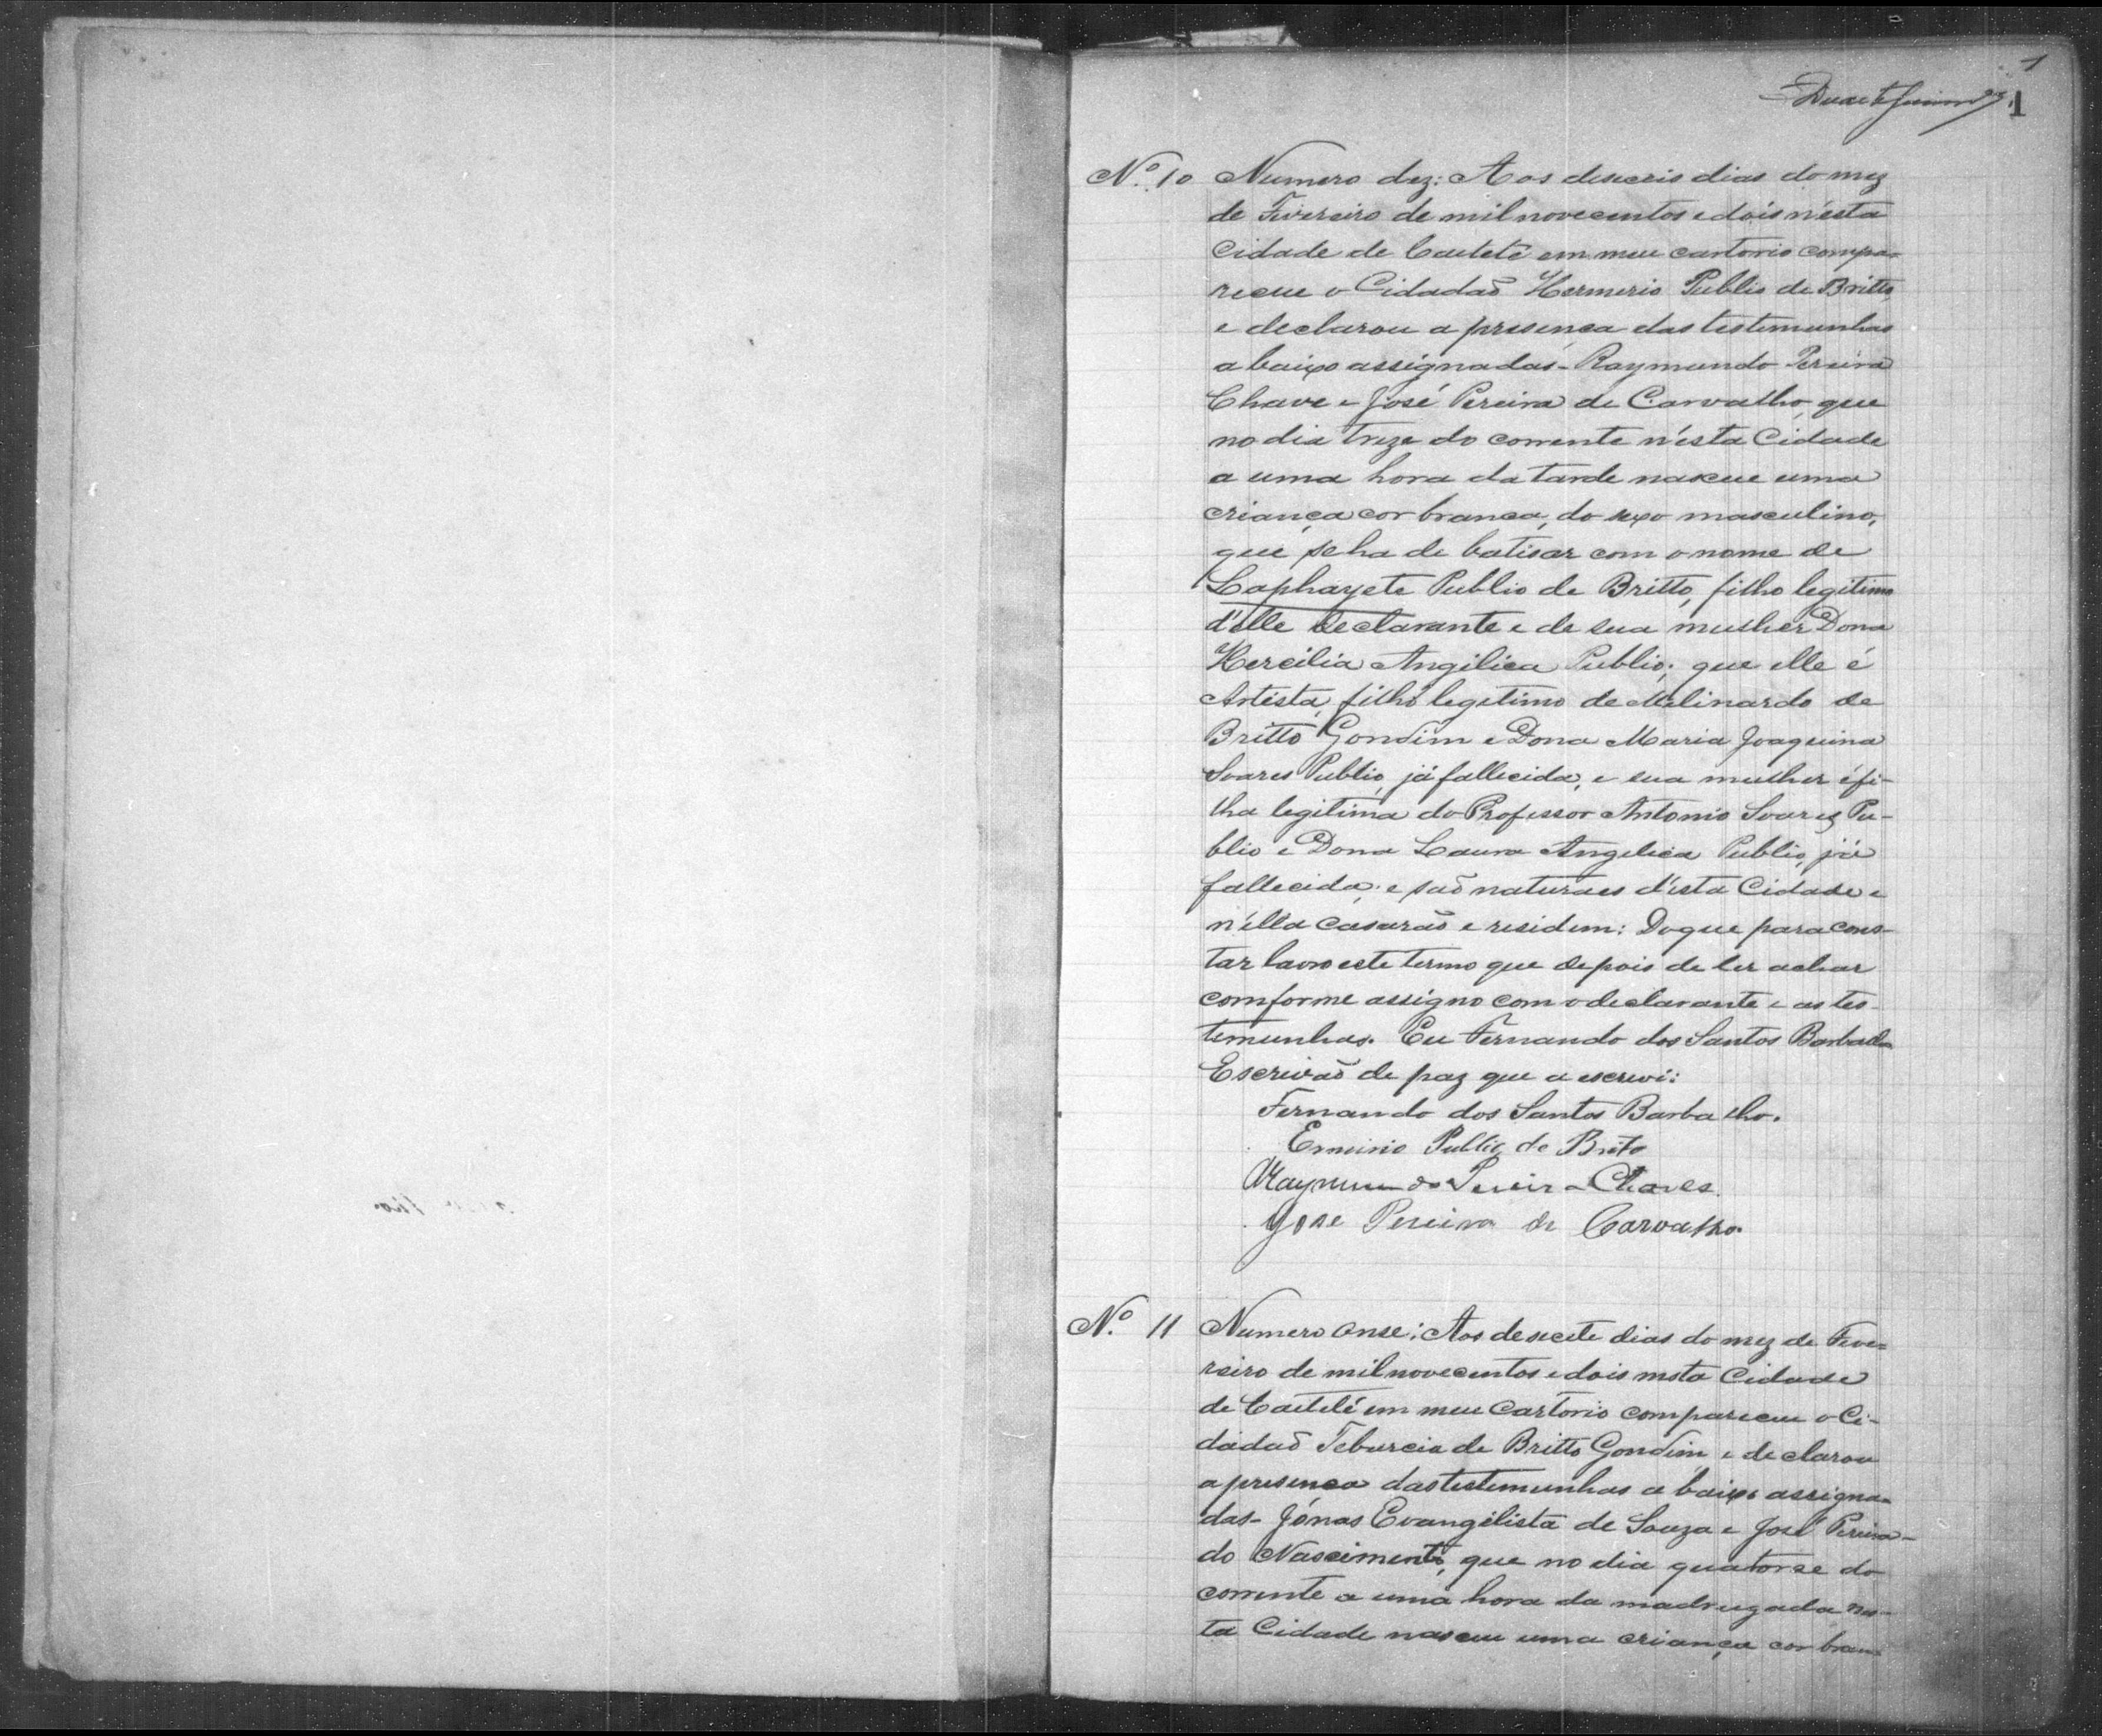 1
1
Nº 10 Numero dez: Aos deseceis dias do mez
de Fevereiro de mil novecentos e dois n'esta
Cidade de Caeteté em meu cartorio compa-
receu o Cidadaõ Hermerio Publio de Britto
e declarou a presença das testemunhas
a baixo assignadas - Raymundo Pereira
Chave e José Pereira de Carvalho, que
no dia treze do corrente n'esta Cidade
a uma hora da tarde nasceu uma
criança cor branca, do sexo masculino,
que se ha de batisar com o nome de
Laphayete Publio de Britto, filho legitimo
d'elle declarante e de sua mulher Dona
Hercilia Angilica Publio; que elle é
Artista, filho legitimo de Melinardo de
Britto Gondim e Dona Maria Joaquina
Soares Publio, já fallecida, e sua mulher é fi-
lha legitima do Professor Antonio Soares Pu-
blio e Dona Laura Angelica Publio, já
fallecida; e saõ naturaes d'esta Cidade e
n'ella casaraõ e residem: Do que para cons-
tar lavro este termo que depois de ler achar
comforme assigno com o declarante e as tes-
temunhas. Eu Fernando dos Santos Barbalho
Escrivaõ de paz que a escrevi:
Fernando dos Santos Barbalho.
Erminio Publio de Brito
Raymundo Pereira Chaves.
Jose Pereira de Carvalho.
Nº 11 Numero onse: Aos desecete dias do mez de Feve=
reiro de mil novecentos e dois nesta Cidade
de Caeteté em meu Cartorio compareceu o Ci-
dadaõ Teburcio de Britto Gondim e declarou
a presença das testemunhas a baixo assigna=
das - Jónas Evangelista de Souza e José Pereira
do Nascimento, que no dia quatorse do
corrente a uma hora da madrugada nes-
ta Cidade nasceu uma criança cor bran-